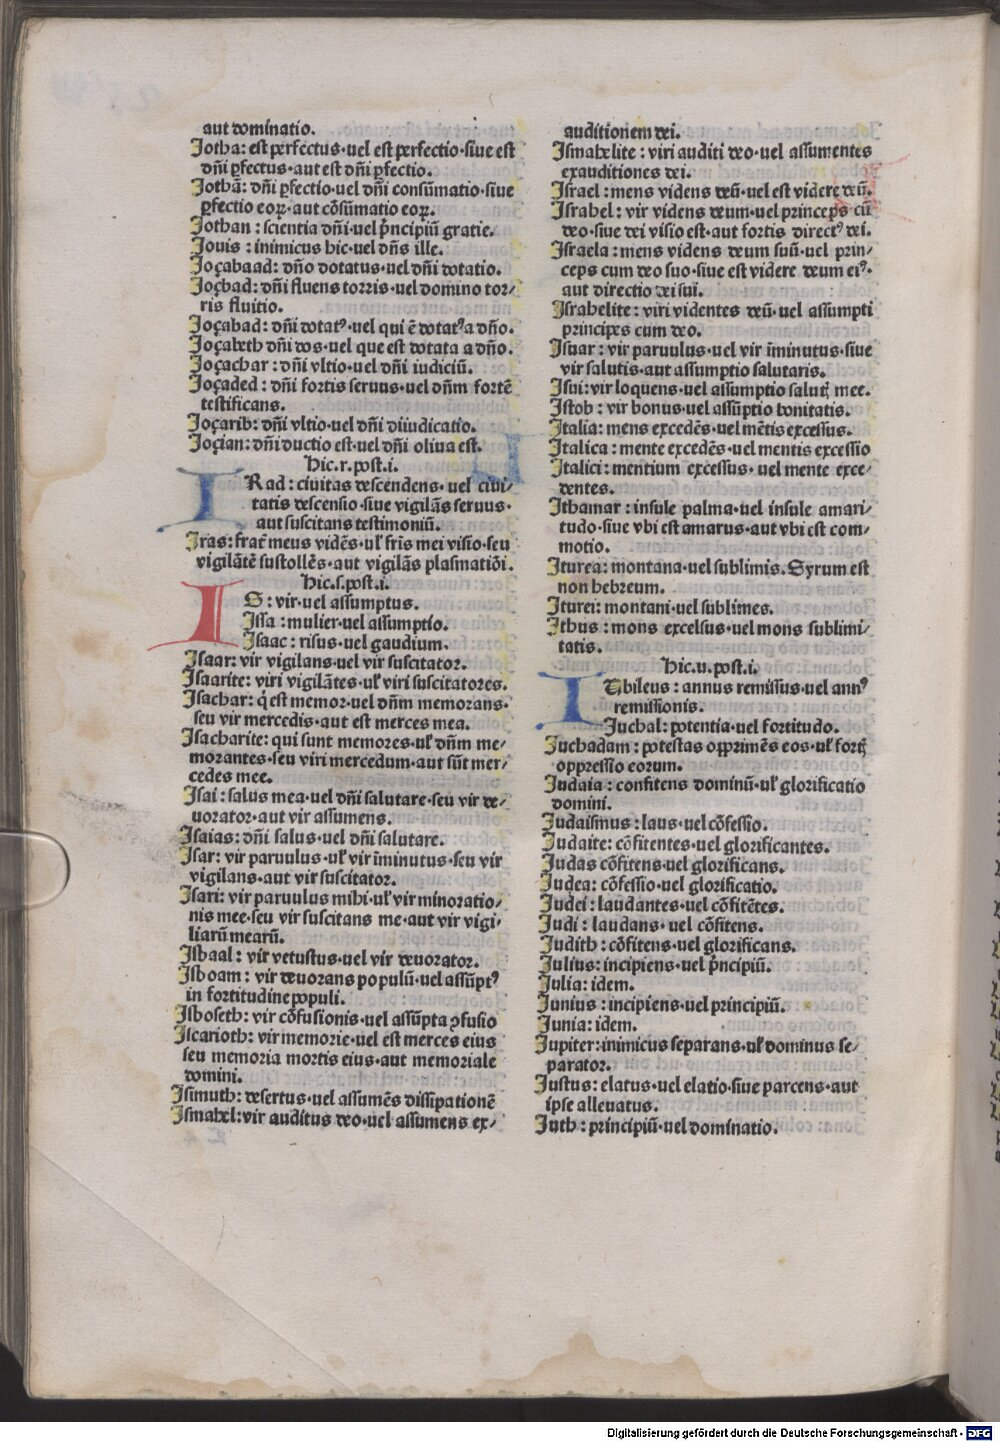 aut dominatio.
Jotha: est perfectus·uel est perfectio·siue est
dñi ꝑfectus·aut est dñi ꝑfectio.
Jothã: dñi ꝑfectio·uel dñi consũmatio·siue
ꝑfectio eoꝝ·aut cõsũmatio eoꝝ.
Jothan: scientia dñi·uel p̃ncipiũ gratie.
Jouis: inimicus hic·uel dñs ille.
Joçabaad: dño dotatus·uel dñi dotatio.
Joçbad: dñi fluens torris·uel domino tor⸗
ris fluitio.
Joçabad: dñi dotatꝰ·uel qui ē dotatꝰ a dño.
Joçabeth dñi dos·uel que est dotata a dño.
Joçachar: dñi vltio·uel dñi iudiciũ.
Joçaded: dñi fortis seruus·uel dñm fortẽ
testificans.
Joçarib: dñi vltio·uel dñi diiudicatio.
Joçian: dñi ductio est·uel dñi oliua est.
hic.r.post.i.
IRad: ciuitas descendens·uel ciui⸗
tatis descensio·siue vigilãs seruus·
aut suscitans testimoniũ.
Jras: frat̃ meus vidẽs·uƚ fr̃is mei visio·seu
vigilãtẽ sustollẽs·aut vigilãs plasmatiõi.
hic.s.post.i.
IS: vir·uel assumptus.
Jssa: mulier·uel assumptio.
Jsaac: risus·uel gaudium.
Jsaar: vir vigilans·uel vir suscitator.
Jsaarite: viri vigilãtes·uƚ viri suscitatores.
Jsachar: q̇ est memor·uel dñm memorans·
seu vir mercedis·aut est merces mea.
Jsacharite: qui sunt memores·uƚ dñm me⸗
morantes·seu viri mercedum·aut sũt mer⸗
cedes mee.
Jsai: salus mea·uel dñi salutare·seu vir de⸗
uorator·aut vir assumens.
Jsaias: dñi salus·uel dñi salutare.
Jsar: vir paruulus·uƚ vir ĩminutus·seu vir
vigilans·aut vir suscitator.
Jsari: vir paruulus mihi·uƚ vir minoratio⸗
nis mee·seu vir suscitans me·aut vir vigi⸗
liarũ mearũ.
Jsbaal: vir vetustus·uel vir deuorator.
Jsboam: vir deuorans populũ·uel assũptꝰ
in fortitudine populi.
Jsboseth: vir cõfusionis·uel assũpta ꝯfusio
Jscarioth: vir memorie·uel est merces eius
seu memoria mortis eius·aut memoriale
domini.
Jsimuth: desertus·uel assumẽs dissipationẽ
Jsmahel: vir auditus deo·uel assumens ex⸗
auditionem dei.
Jsmahelite: viri auditi deo·uel assumentes
exauditiones dei.
Jsrael: mens videns deũ·uel est videre deũ.
Jsrahel: vir videns deum·uel princeps cũ
deo·siue dei visio est·aut fortis directꝰ dei.
Jsraela: mens videns deum suũ·uel prin⸗
ceps cum deo suo·siue est videre deum eiꝰ·
aut directio dei sui.
Jsrahelite: viri videntes deũ·uel assumpti
principes cum deo.
Jsuar: vir paruulus·uel vir ĩminutus·siue
vir salutis·aut assumptio salutaris.
Jsui: vir loquens·uel assumptio salutꝭ mee.
Jstob: vir bonus·uel assũptio bonitatis.
Jtalia: mens excedẽs·uel mẽtis excessus.
Jtalica: mente excedẽs·uel mentis excessio
Jtalici: mentium excessus·uel mente exce⸗
dentes.
Jthamar: insule palma·uel insule amari⸗
tudo·siue vbi est amarus·aut vbi est com⸗
motio.
Jturea: montana·uel sublimis. Syrum est
non hebreum.
Jturei: montani·uel sublimes.
Jthus: mons excelsus·uel mons sublimi⸗
tatis.
hic.u.post.i.
IVbileus: annus remissus·uel annꝰ
remissionis.
Juchal: potentia·uel fortitudo.
Juchadam: potestas opprimẽs eos·uƚ fortꝭ
oppressio eorum.
Judaia: confitens dominũ·uƚ glorificatio
domini.
Judaismus: laus·uel cõfessio.
Judaite: cõfitentes·uel glorificantes.
Judas cõfitens·uel glorificans.
Judea: cõfessio·uel glorificatio.
Judei: laudantes·uel cõfitẽtes.
Judi: laudans·uel cõfitens.
Judith: cõfitens·uel glorificans.
Julius: incipiens·uel p̃ncipiũ.
Julia: idem.
Junius: incipiens·uel principiũ.
Junia: idem.
Jupiter: inimicus separans·uƚ dominus se⸗
parator.
Justus: elatus·uel elatio·siue parcens·aut
ipse alleuatus.
Juth: principiũ·uel dominatio.
Digitalisierung gefördert durch die Deutsche Forschungsgemeinschaft - DFG